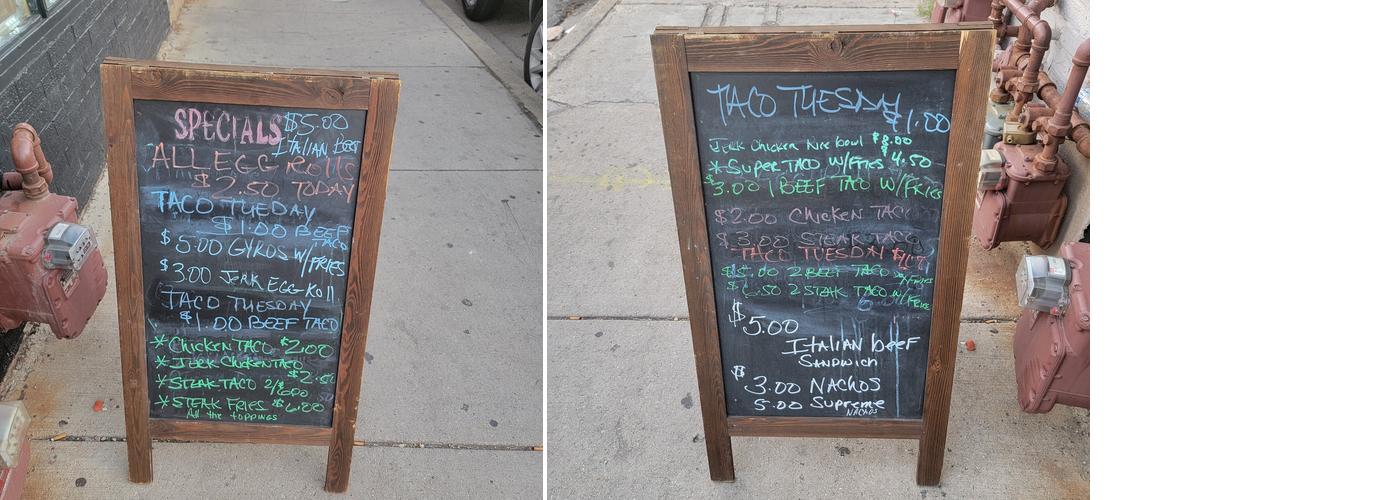 SPECIALS $5.00
ITALIAN BEEF
ALL EGG Rolls
$2.50 TODAY
TACO TUEDAY
$1.00 BEEF
TACO
$5.00 GYROS W/FRIES
$3.00 JERK EGG Roll
TACO TUESDAY
$1.00 BEEF TACO
*Chicken TACO $2.00
*JERK Chicken TACO
$2.50
*STEAK TACO 2/$
*STEAK FRIES $6.00
All the toppings
TACO TUESDAY
$1.00
Jerk Chicken Rice bowl $8.00
*Super TACO W/FRIES $4.50
$3.00 1 BEEF TACO W/FRIES
$2.00 Chicken TACO
$3.00 STEAK TACO
TACO TUESDAY
$5.00 2 BEEF TACO W/FRIES
$6.50 2 STEAK TACO W/FRIES
$5.00
ITALIAN beeF
SANDWICH
$3.00 NACHOS
5.00 Supreme
NACHOS